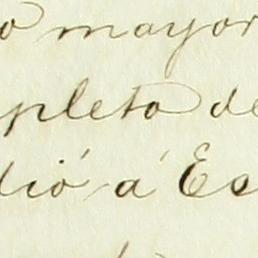 o mayor
pleto de
dió á Es